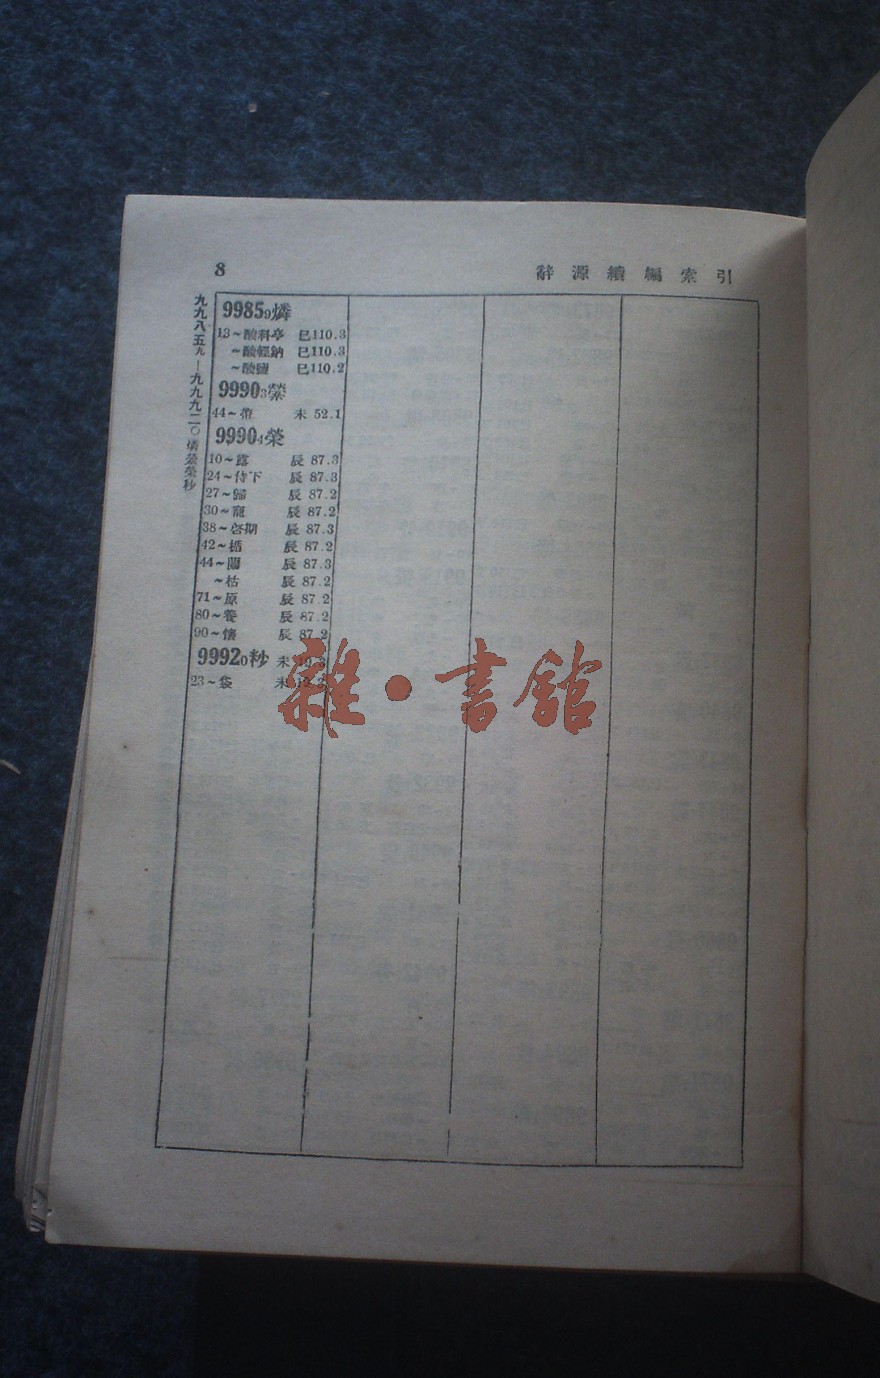 8
辭源續編索引
九九八五九—九九九二〇 燐縈榮秒
9985₉燐
13~酸科亭 巳110.3
~酸輕鈉 巳110.3
~酸鹽 巳110.2
9990₃縈
44~帶 未 52.1
9990₄榮
10~露 辰 87.3
24~侍下 辰 87.3
27~歸 辰 87.2
30~寵 辰 87.2
38~啓期 辰 87.3
42~楯 辰 87.2
44~蘭 辰 87.3
~枯 辰 87.2
71~原 辰 87.2
80~養 辰 87.2
90~懷 辰 87.2
9992₀秒 未
23~袋 未
雜·書館